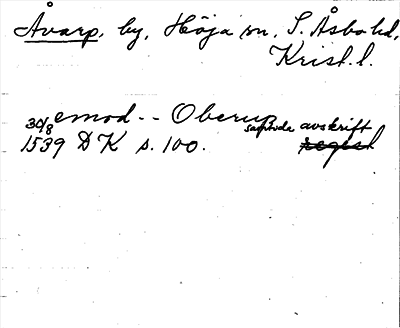 Åvarp, by, Höja sn, S. Åsbo hd,
Krist. l.
emod -- Oberup
30/8 samtida avskrift
1539 DK s. 100. regist